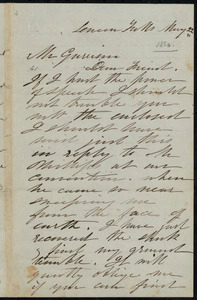 Seneca Falls May 22
1856.
Mr Garrison
Dear Friend.
If I had the power
of speech I should
not trouble you
with the enclosed
I should have
said just this
in reply to the
at our
convention when
he came so near
sweeping me
from the face of
earth. I have just
recovered the
& find my ground
tenable. It will
greatly oblige me
if you can find